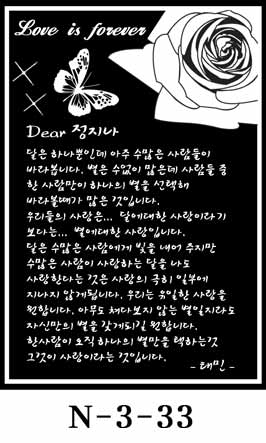 Love is forever
Dear 정지나
달은 하나뿐인데 아주 수많은 사람들이
바라봅니다. 별은 수없이 많은데 사람들 중
한 사람만이 하나의 별을 선택해
바라볼때가 많은 것입니다.
우리들의 사랑은... 달에대한 사랑이라기
보다는... 별에대한 사랑입니다.
달은 수많은 사람에게 빛을 내어 주지만
수많은 사람이 사랑하는 달을 나도
사랑한다는 것은 사랑의 극히 일부에
지나지 않게됩니다. 우리는 유일한 사랑을
원합니다. 아무도 쳐다보지 않는 별일지라도
자신만의 별을 갖게되길 원합니다.
한사람이 오직 하나의 별만을 택하는것
그것이 사랑이라는 것입니다.
- 태민 -
N-3-33